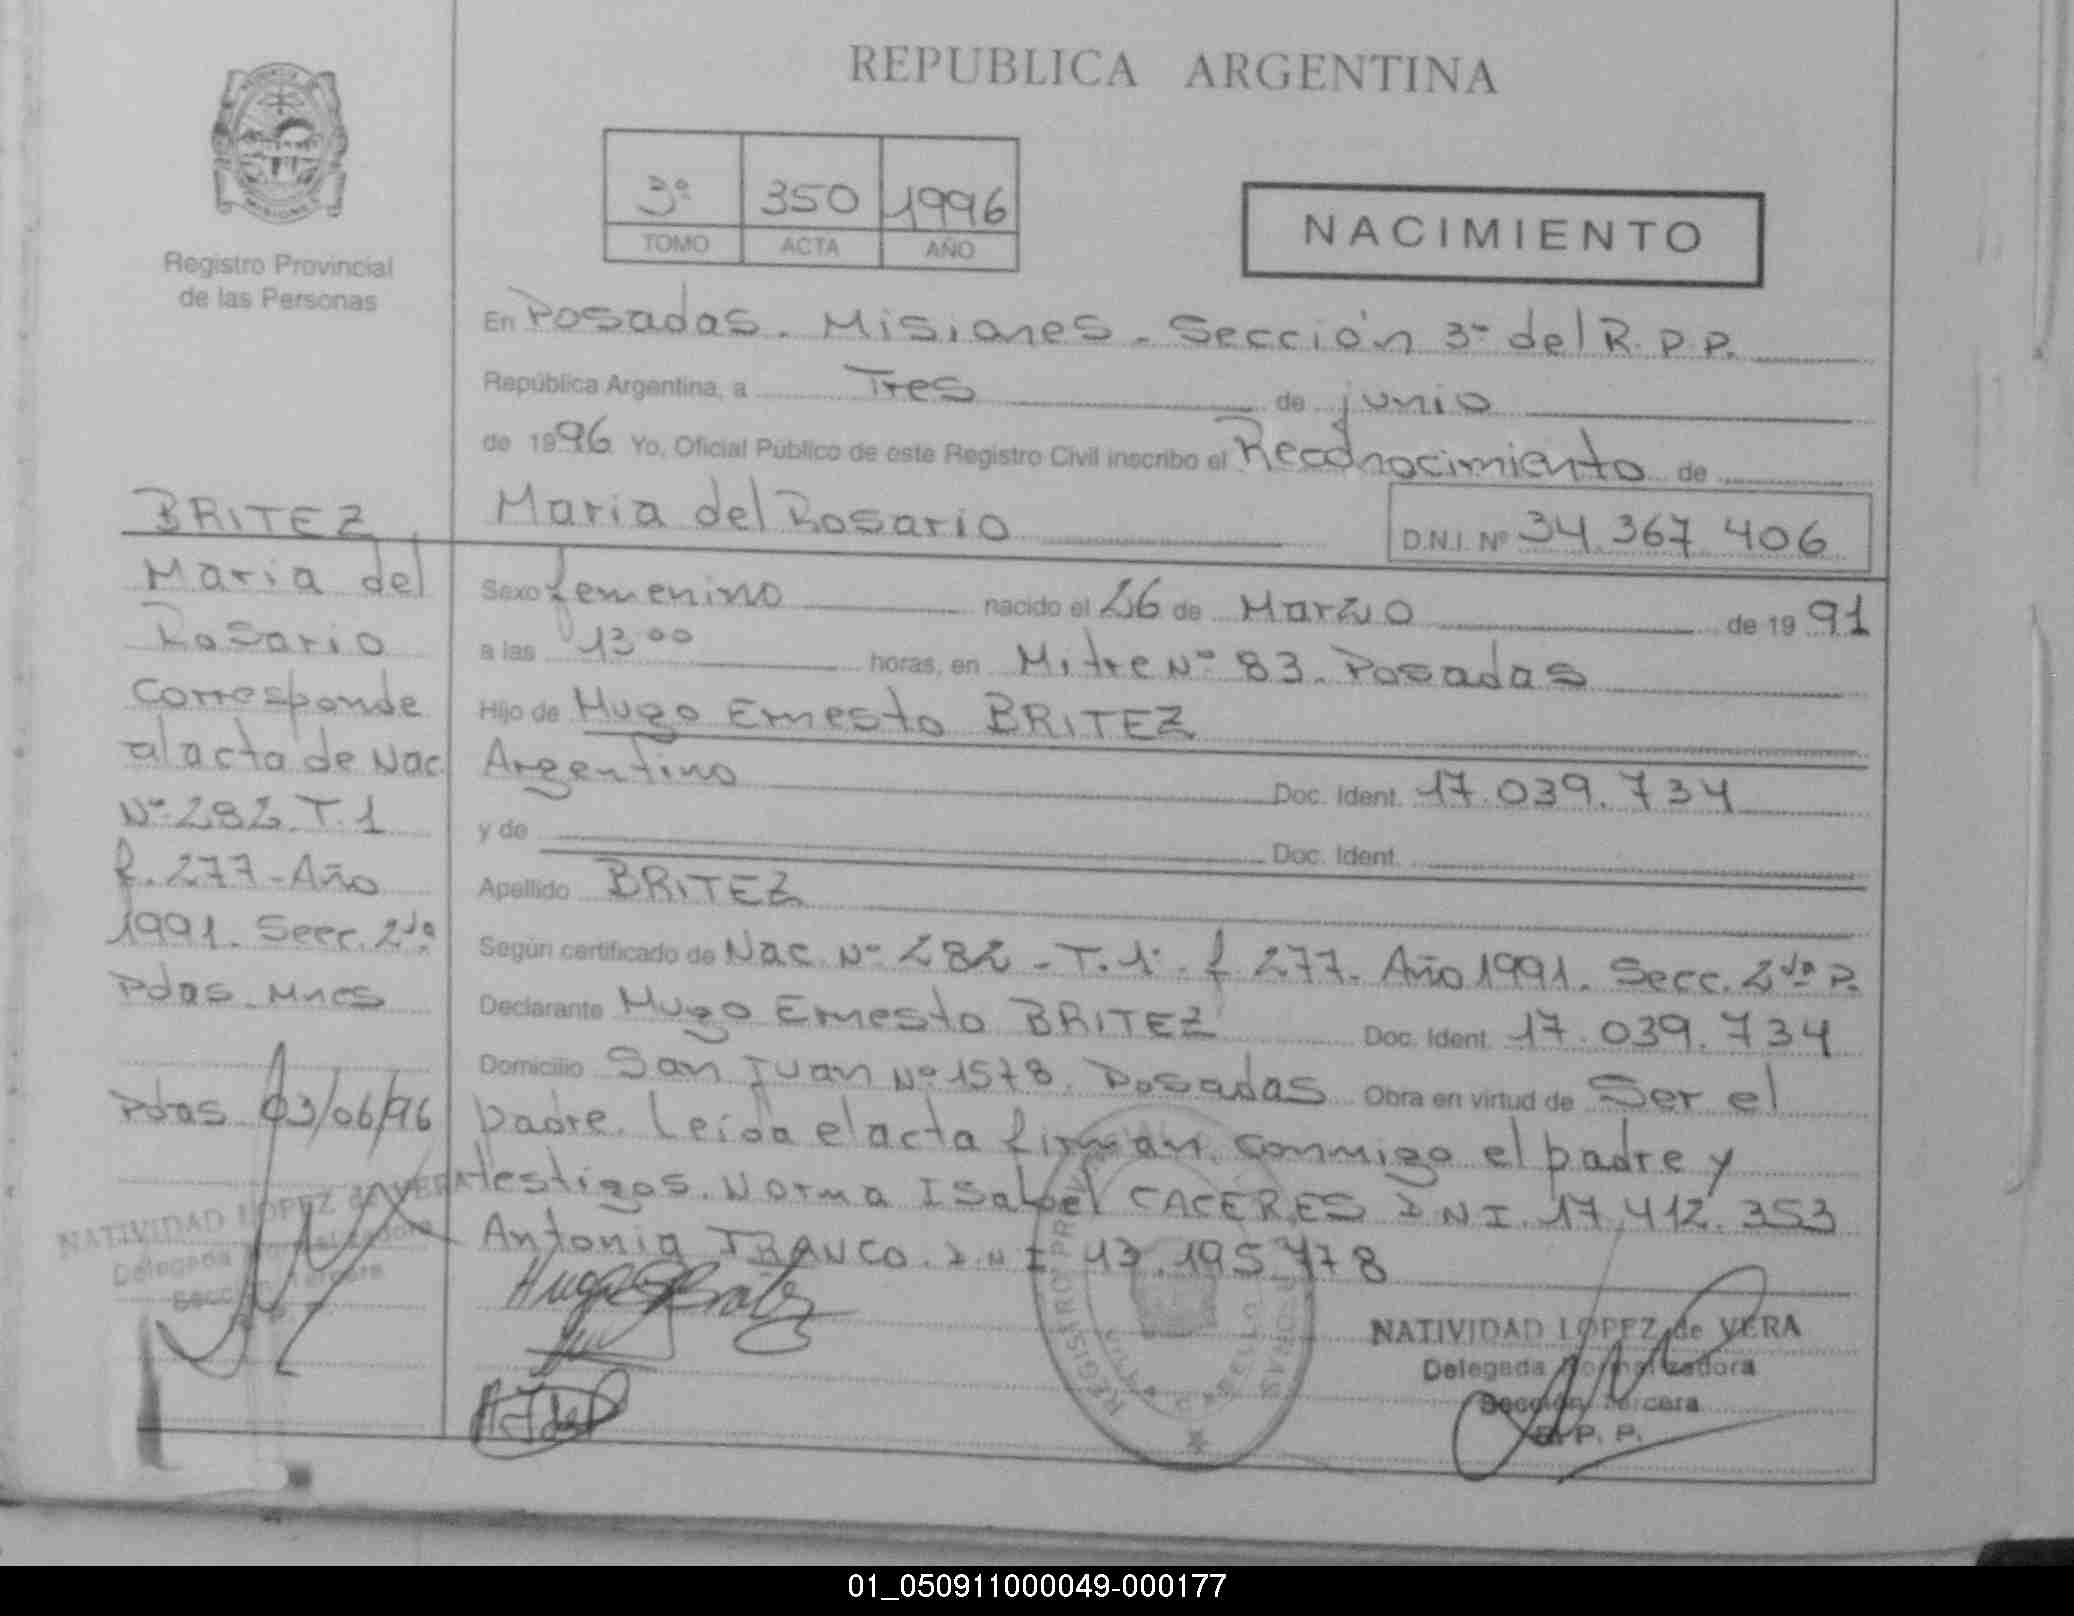 REPUBLICA ARGENTINA
MISIONES
Registro Provincial
de las Personas
3º 350 1996
TOMO ACTA AÑO
NACIMIENTO
En Posadas. Misiones. Sección 3ª del R.P.P.
República Argentina, a Tres de junio
de 1996 Yo, Oficial Público de este Registro Civil inscribo el Reconocimiento de
Maria del Rosario D.N.I. Nº 34.367.406
Sexo femenino nacido el 26 de Marzo de 1991
a las 13.00 horas, en Mitre Nº 83. Posadas
Hijo de Hugo Ernesto BRITEZ
Argentino Doc. Ident. 17.039.734
y de Doc. Ident.
Apellido BRITEZ
Según certificado de Nac. Nº 282 - T.1º. f 277. Año 1991. Secc. 2da P.
Declarante Hugo Ernesto BRITEZ Doc. Ident. 17.039.734
Domicilio San Juan Nº 1578. Posadas Obra en virtud de Ser el
padre. Leída el acta firman conmigo el padre y
testigos. Norma Isabel CACERES D.N.I. 17.412.353
Antonia D.N.I.
NATIVIDAD LOPEZ de VERA
Delegada Normalizadora
Sección Tercera
R. P. P.
BRITEZ,
Maria del
Rosario
Corresponde
al acta de Nac.
Nº 282. T.1
f. 277 - Año
1991. Secc. 2da
Pdas. Mnes
Pdas. 03/06/96
NATIVIDAD LOPEZ de VERA
Delegada Normalizadora
Sección Tercera
01_050911000049-000177